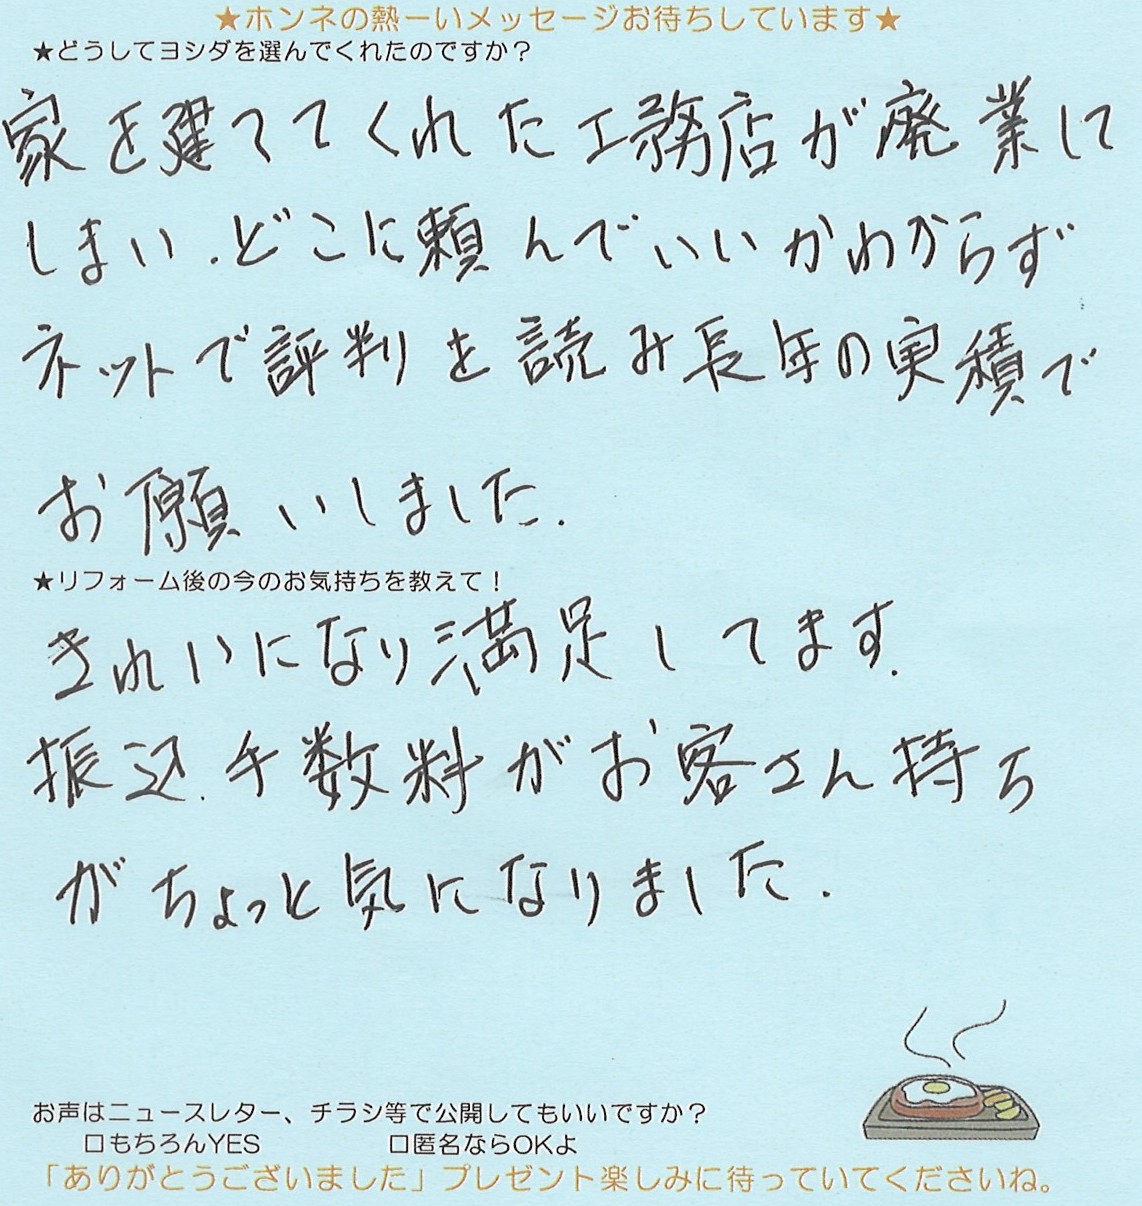 ★ホンネの熱ーいメッセージお待ちしています★
★どうしてヨシダを選んでくれたのですか？
家を建ててくれた工務店が廃業して
しまい.どこに頼んでいいかわからず
ネットで評判を読み長年の実積で
お願いしました.
★リフォーム後の今のお気持ちを教えて！
きれいになり満足してます.
振込.手数料がお客さん持ち
がちょっと気になりました.
お声はニュースレター、チラシ等で公開してもいいですか？
□もちろんYES □匿名ならOKよ
「ありがとうございました」プレゼント楽しみに待っていてくださいね。